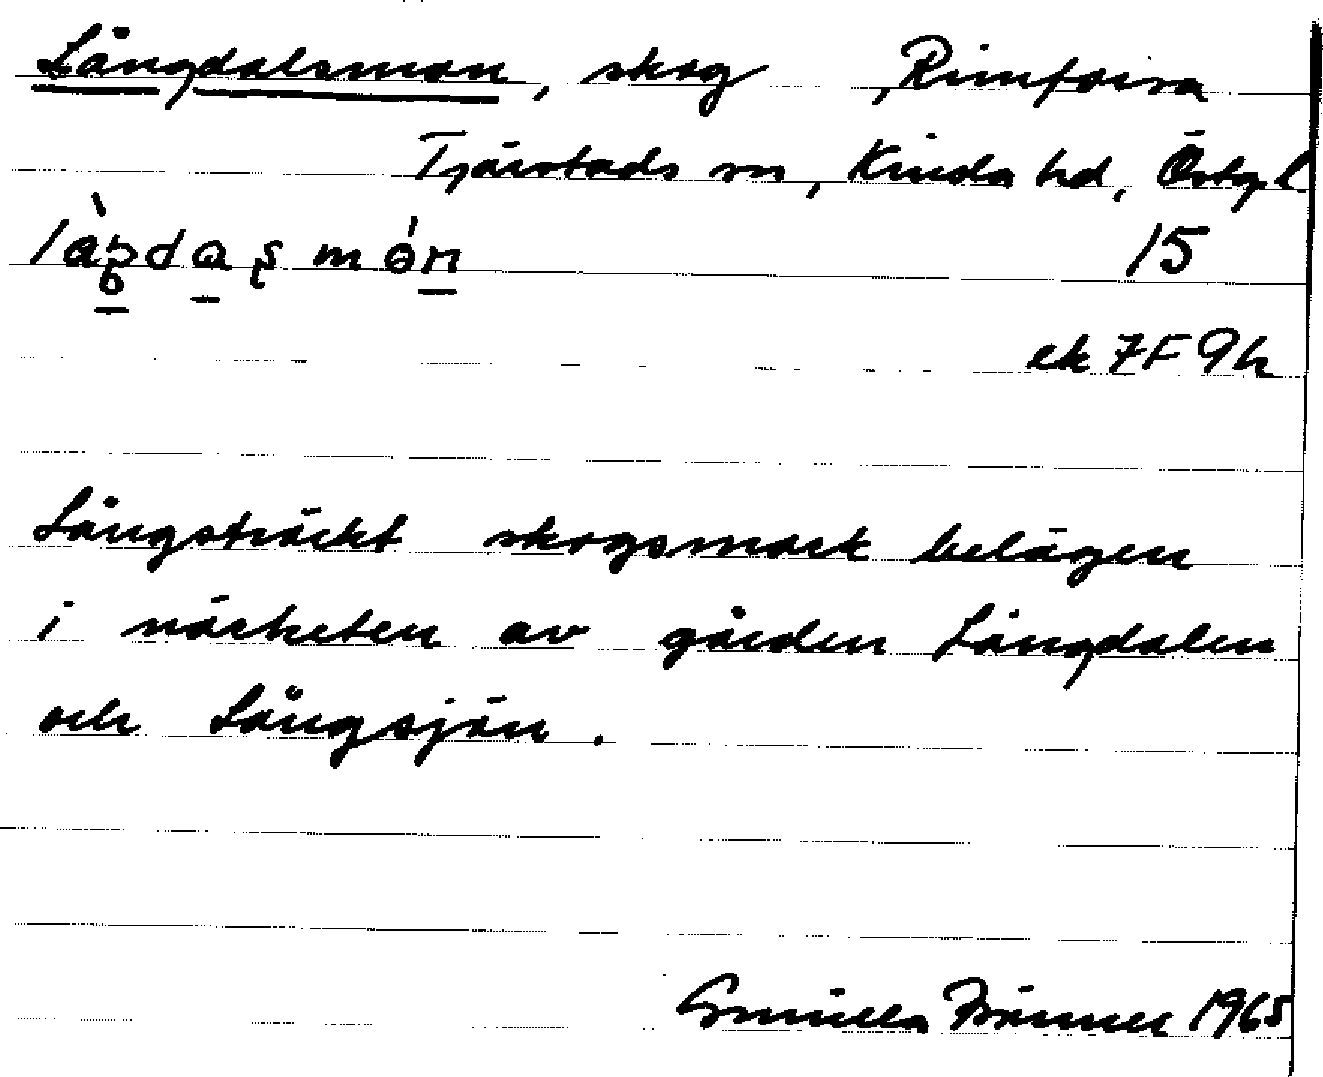 Långdalsmon, skog, Rimforsa
Tjärstads sn, Kinda hd, Östgl
15
ek 7F 9h
Långsträckt skogsmark belägen
i närheten av gården Långdalen
och Långsjön.
Gunilla 1965